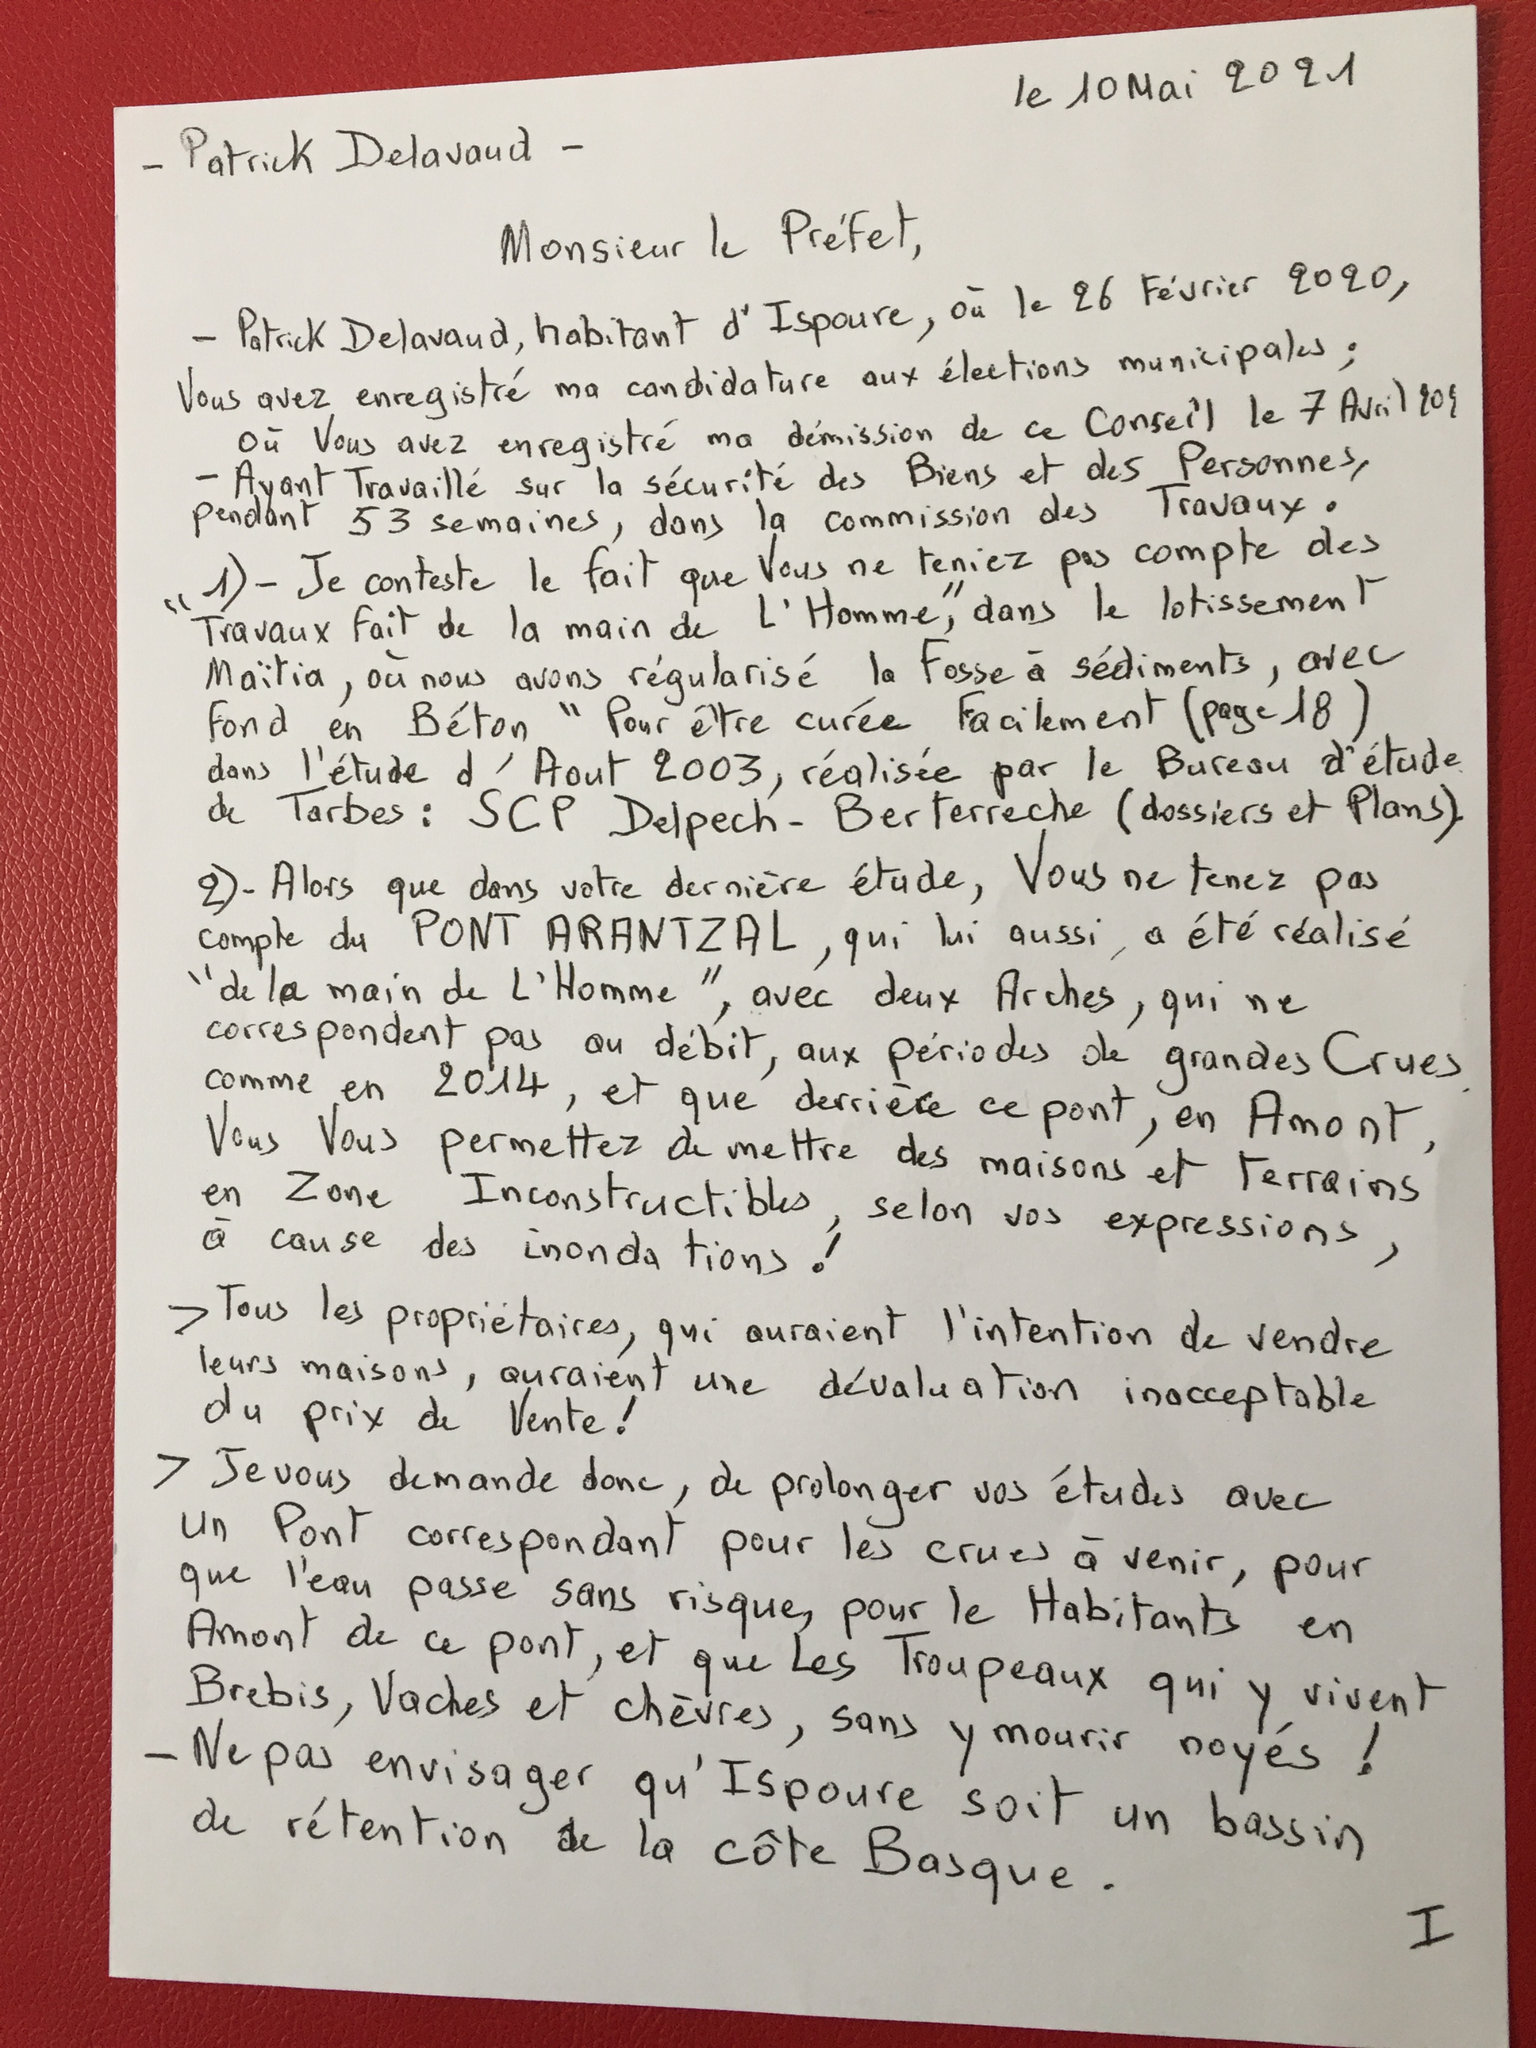 le 10 Mai 2021
- Patrick Delavaud -
Monsieur le Préfet,
- Patrick Delavaud, habitant d'Ispoure, où le 26 Février 2020,
Vous avez enregistré ma candidature aux élections municipales;
où Vous avez enregistré ma démission de ce Conseil le 7 Avril 202
- Ayant Travaillé sur la sécurité des Biens et des Personnes,
pendant 53 semaines, dans la commission des Travaux.
1)- Je conteste le fait que Vous ne teniez pas compte des
"Travaux fait de la main de L'Homme", dans le lotissement
Maïtia, où nous avons régularisé la Fosse à sédiments, avec
fond en Béton " Pour être curée Facilement (page 18)
dans l'étude d'Aout 2003, réalisée par le Bureau d'étude
de Tarbes: SCP Delpech- Berterreche (dossiers et Plans).
2)- Alors que dans votre dernière étude, Vous ne tenez pas
compte du PONT ARANTZAL, qui lui aussi, a été réalisé
"de la main de L'Homme", avec deux Arches, qui ne
correspondent pas au débit, aux périodes de grandes Crues
comme en 2014, et que derrière ce pont, en Amont,
Vous Vous permettez de mettre des maisons et Terrains
en Zone Inconstructibles, selon vos expressions,
à cause des inondations!
> Tous les propriétaires, qui auraient l'intention de vendre
leurs maisons, auraient une dévaluation inacceptable
du prix de Vente!
> Je vous demande donc, de prolonger vos études avec
un Pont correspondant pour les crues à venir, pour
que l'eau passe sans risque, pour le Habitants en
Amont de ce pont, et que Les Troupeaux qui y vivent
Brebis, Vaches et chèvres, sans y mourir noyés!
- Ne pas envisager qu'Ispoure soit un bassin
de rétention de la côte Basque.
I